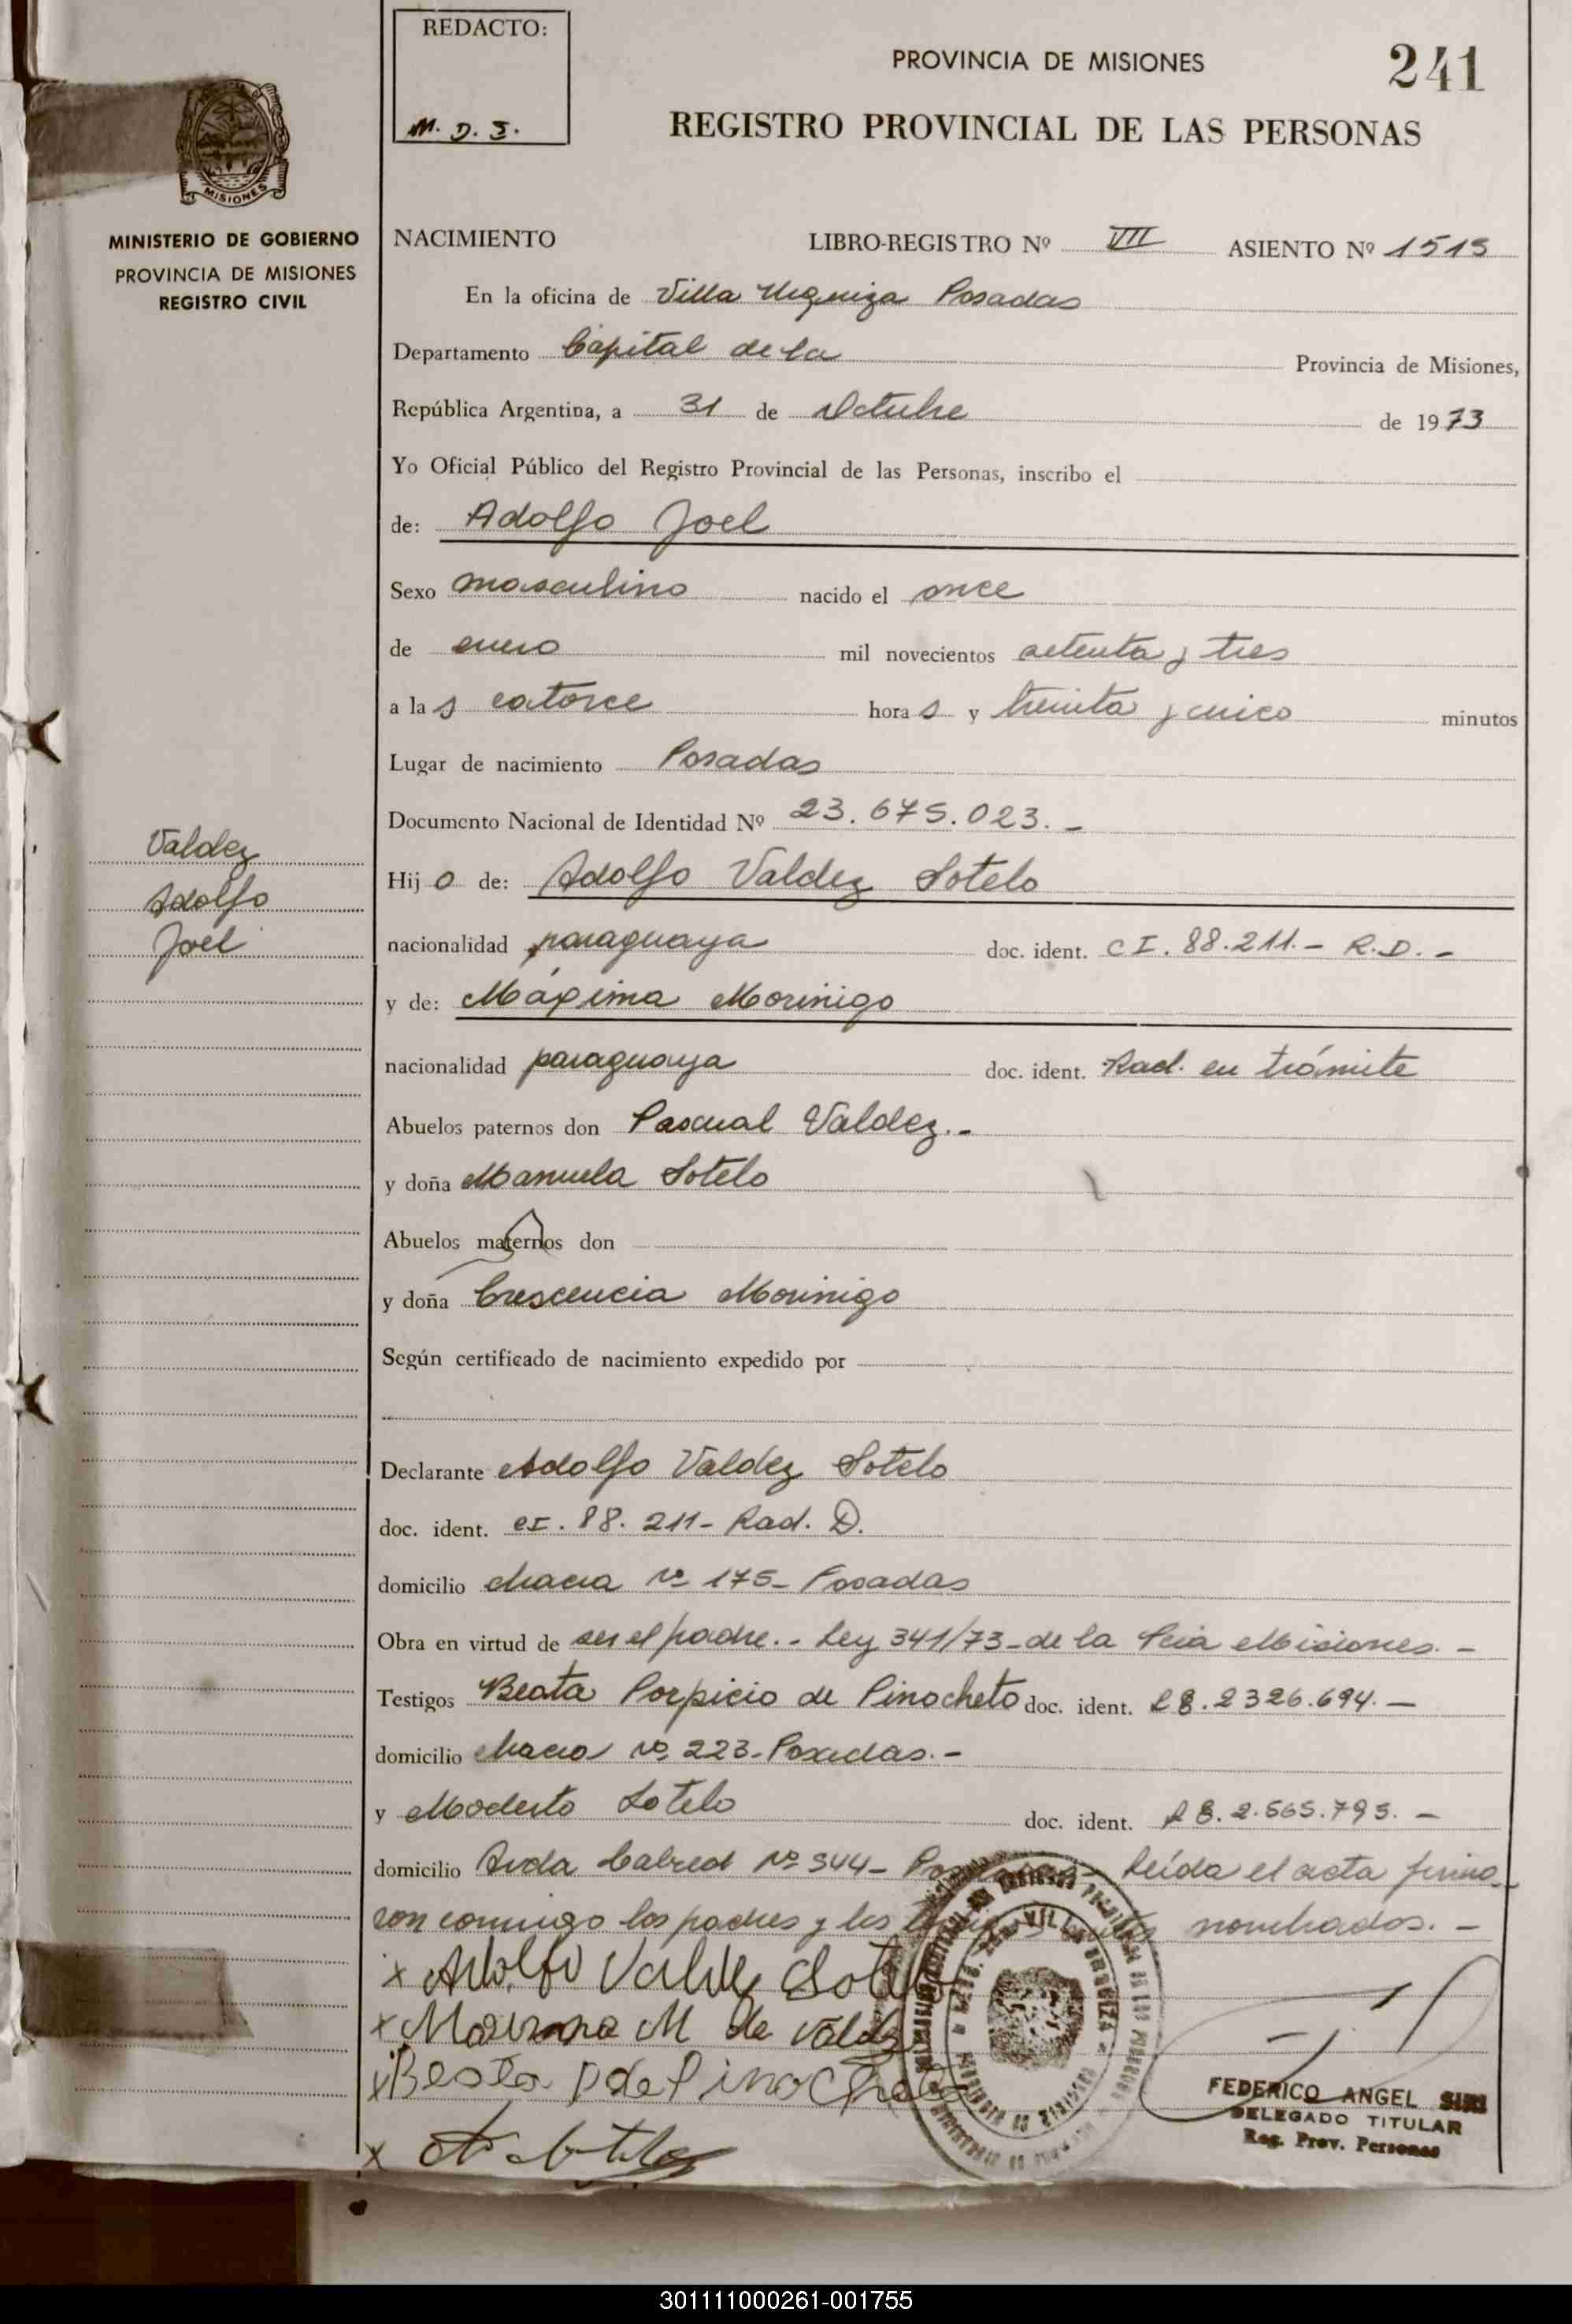 REDACTO:
M. D. J.
PROVINCIA DE MISIONES
241
REGISTRO PROVINCIAL DE LAS PERSONAS
MISIONES
MINISTERIO DE GOBIERNO
PROVINCIA DE MISIONES
REGISTRO CIVIL
NACIMIENTO LIBRO-REGISTRO Nº VII ASIENTO Nº 1515
En la oficina de Villa Urquiza Posadas
Departamento Capital de la Provincia de Misiones,
República Argentina, a 31 de Octubre de 1973
Yo Oficial Público del Registro Provincial de las Personas, inscribo el
de: Adolfo Joel
Sexo masculino nacido el once
de enero mil novecientos setenta y tres
a las catorce horas y treinta y cinco minutos
Lugar de nacimiento Posadas
Documento Nacional de Identidad Nº 23.675.023.-
Valdez
Adolfo
Joel
Hijo de: Adolfo Valdez Sotelo
nacionalidad paraguaya doc. ident. CI. 88.211.- R.D.-
y de: Máxima Morinigo
nacionalidad paraguaya doc. ident. Rad. en trámite
Abuelos paternos don Pascual Valdez.-
y doña Manuela Sotelo
Abuelos maternos don
y doña Crescencia Morinigo
Según certificado de nacimiento expedido por
Declarante Adolfo Valdez Sotelo
doc. ident. CI. 88. 211- Rad. D.
domicilio Chacra nº 175- Posadas
Obra en virtud de ser el padre.- Ley 341/73-de la Pcia Misiones.-
Testigos Beata Porpicio de Pinocheto doc. ident. L8.2326.694.-
domicilio Chacra nº 223-Posadas.-
y Modesto Sotelo doc. ident. L8.2.565.795.-
domicilio Avda Cabred nº 344- Leída el acta firma-
ron conmigo los padres y los nombrados.-
x Adolfo Valdez Sotelo
x M de Valdez
x Beata P de Pinocheto
x
FEDERICO ANGEL SIRI
DELEGADO TITULAR
Reg. Prov. Personas
301111000261-001755